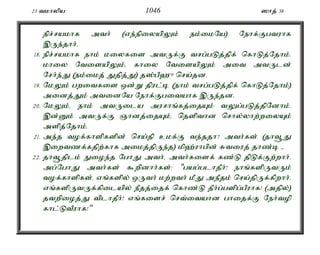 23 வமாலிய 1046 ஸாத் 38
நிச்சயமாக அவர் (எந்நிலையிலும் நம்மையே) நோக்குபவராக
இருந்தார்.
18. நிச்சயமாக நாம் மலைகளை அவருக்கு வசப்படுத்திக் கொடுத்தோம்.
மாலை வேளையிலும், காலை வேளையிலும் அவை அவருடன்
சேர்ந்து (நம்மைத் துதித்து) தஸ்பீஹு செய்தன.
19. மேலும் பறவைகளை ஒன்று திரட்டி (நாம் வசப்படுத்திக் கொடுத்தோம்)
அனைத்தும் அவனையே நோக்குபவையாக இருந்தன.
20. மேலும், நாம் அவருடைய அரசாங்கத்தையும் வலுப்படுத்தினோம்.
இன்னும் அவருக்கு ஞானத்தையும், தெளிவான சொல்லாற்றலையும்
அளித்தோம்.
21. அந்த வழக்காளிகளின் செய்தி உமக்கு வந்ததா? அவர்கள் (தாவூது
இறைவணக்கத்திற்காக அமைத்திருந்த) மிஹ்ராபின் சுவரைத் தாண்டி _
22. தாவூதிடம் நுழைந்த போது அவர், அவர்களைக் கண்டு திடுக்குற்றார்.
அப்போது அவர்கள் கூறினார்கள்: "பயப்படாதீர்! நாங்களிருவரும்
வழக்காளிகள். எங்களில் ஒருவர் மற்றவர் மீது அநீதம் செய்திருக்கிறார்.
எங்களிருவருக்கிடையில் நீதத்தைக் கொண்டு தீர்ப்பளிப்பீராக! (அதில்)
தவறிழைத்து விடாதீர்! எங்களைச் செவ்வையான பாதைக்கு நேர்வழி
காட்டுவீராக!"